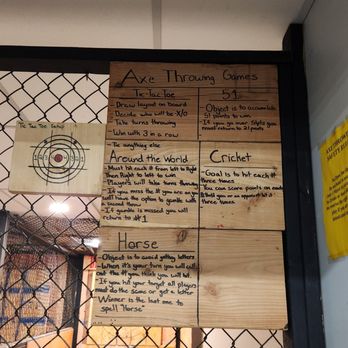 Axe Throwing Games
Tic-Tac-Toe
- Draw layout on board
- Decide who will be X/O
- Take turns throwing
- Win with 3 in a row
- Tie anything else
51
- Object is to accumulate
51 points to win
- If you go over 51 you
must return to 21 points
Around the World
- Must hit each # from left to right
then Right to left to win
- Players will take turns throwing
- If you miss the # you are on you
will have the option to gamble with
a second throw
- If gamble is missed you will
return to #1
Cricket
- Goal is to hit each #
three times
- You can score points on each
three times
Horse
- Object is to avoid getting letters
- When it's your turn you will call
out the # you think you will hit.
- If you hit your target all players
must do the same or get a letter
- Winner is the last one to
spell "Horse"
Tic Tac Toe Setup